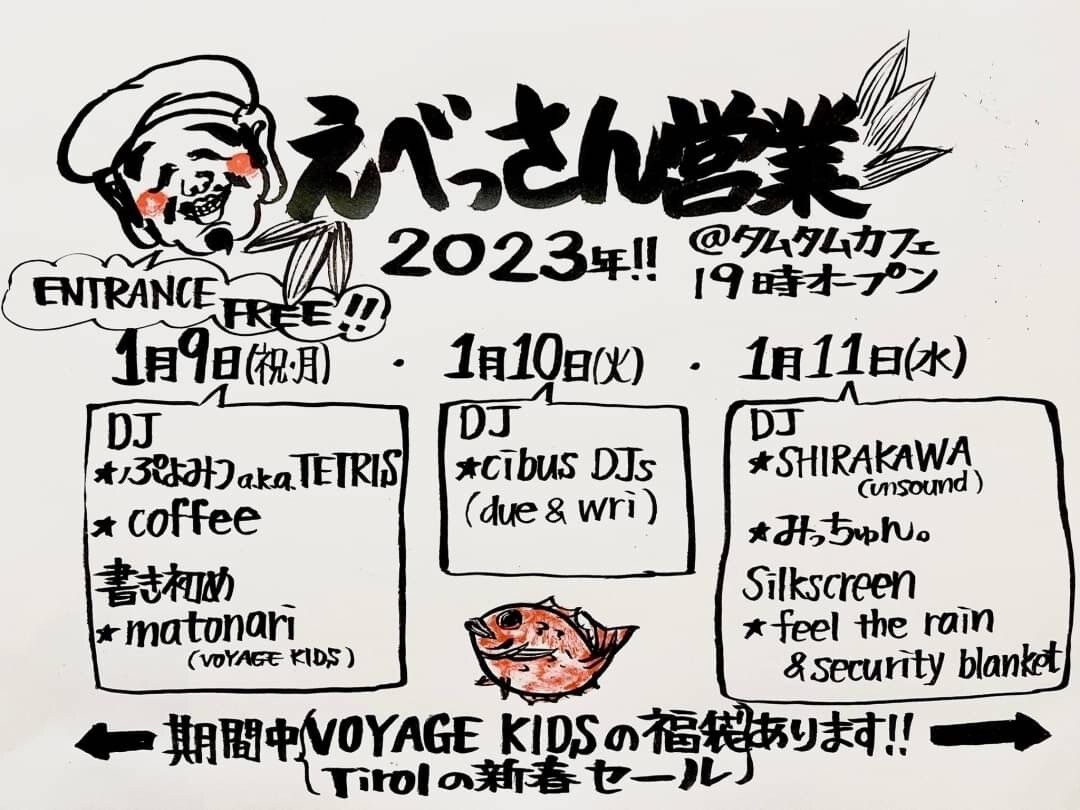 えべっさん営業
2023年!!
@タムタムカフェ
19時オープン
ENTRANCE
FREE!!
1月9日(祝・月)
DJ
★ぷよみつ a.k.a. TETRIS
★coffee
書き初め
★matonari
(VOYAGE KIDS)
・
1月10日(火)
DJ
★cibus DJs
(due & wri)
・
1月11日(水)
DJ
★SHIRAKAWA
(unsound)
★みっちゅん。
Silkscreen
★feel the rain
& security blanket
期間中 VOYAGE KIDSの福袋 あります!!
Tirolの新春セール